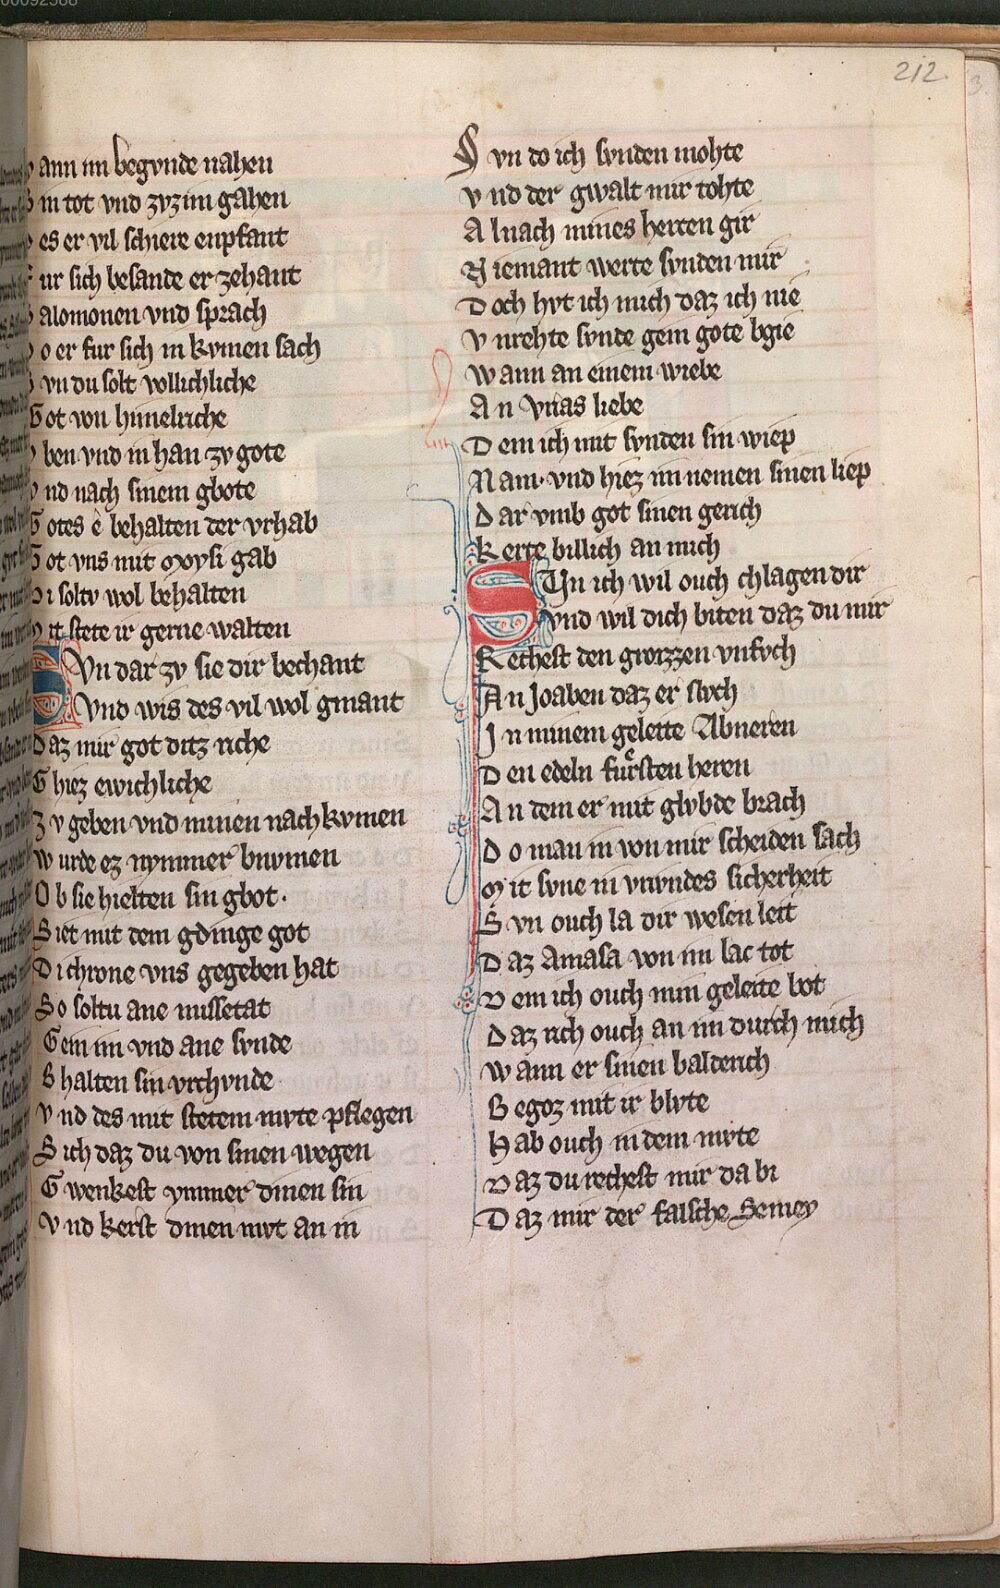 212.
ann im begvnde nahen
in tot vnd zvzim gahen
es er vil schiere enpfant
ur sich besande er zehant
alomonen vnd sprach
o er fur sich in kvmen sach
vn du solt vollichliche
Got von himelriche
ben vnd in han zv gote
nd nach sinem gbote
Gotes ê behalten der vrhab
Got vns mit Moysi gab
Di soltv wol behalten
it stete ir gerne walten
Svn dar zv sie dir bechant
Vnd wis des vil wol gmant
Daz mir got ditz riche
Ghiez ewichliche
Zv geben vnd minen nachkvmen
Wurde ez nymmer bnvmen
Ob sie hielten sin gbot.
Siet mit dem gdinge got
Di chrone vns gegeben hat
So soltu ane missetat
Gein im vnd ane svnde
Bhalten sin vrchvnde
Vnd des mit stetem mvte pflegen
Sich daz du von sinen wegen
Gwenkest ymmer dinen sin
Vnd kerst dinen mvt an in
Svn do ich svnden mohte
Vnd der gwalt mir tohte
Al nach mines herten gir
Niemant werte svnden mir
Doch hvt ich mich daz ich nie
Vnrehte svnde gem gote bgie
Wann an einem wiebe
An Vrias liebe
Dem ich mit svnden sin wiep
Nam. vnd hiez im nemen sinen liep
Dar vmb got sinen gerich
Kerte billich an mich
SVn ich wil ouch chlagen dir
Vnd wil dich biten daz du mir
Rechest den grozzen vnfvch
An Joaben daz er slvch
In minem geleite Abneren
Den edeln fuͤrsten heren
An dem er mit glvbde brach
Do man in von mir scheiden sach
Mit svne in vrivndes sicherheit
Svn ouch la dir wesen leit
Daz Amasa von im lac tot
Dem ich ouch min geleite bot
Daz rich ouch an im durch mich
Wann er sinen balderich
Begoz mit ir blvte
Hab ouch in dem mvte
Daz du rechest mir da bi
Daz mir der falsche Semey